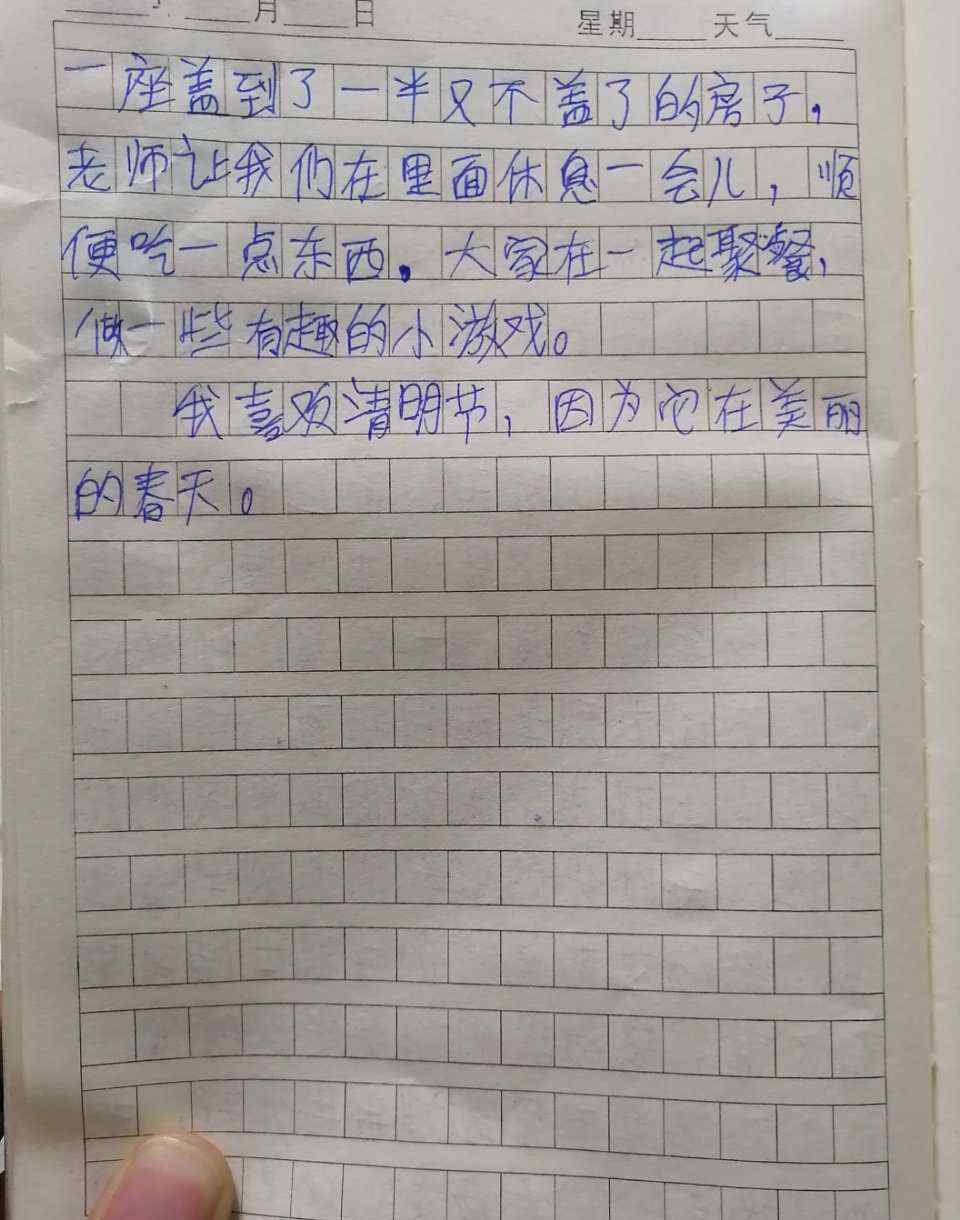 月 日 星期 天气
一座盖到了一半又不盖了的房子，
老师让我们在里面休息一会儿，顺
便吃一点东西。大家在一起聚餐，
做一些有趣的小游戏。
我喜欢清明节，因为它在美丽
的春天。